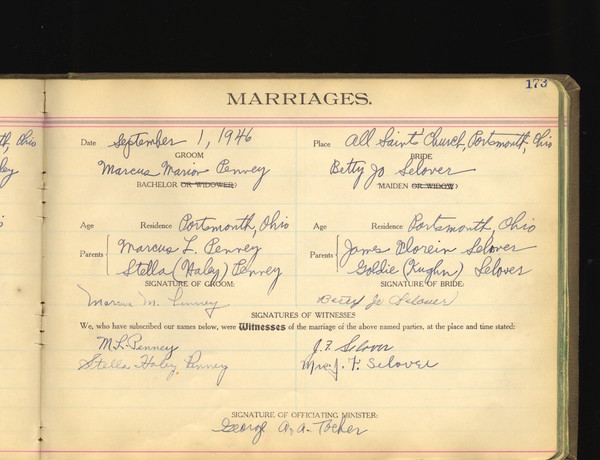 173
MARRIAGES.
th, Ohio
Date September 1, 1946 Place All Saints' Church, Portsmouth, Ohio
GROOM BRIDE
Marcus Marion Penney Betty Jo Selover
BACHELOR OR WIDOWER? MAIDEN OR WIDOW?
Age Residence Portsmouth, Ohio Age Residence Portsmouth, Ohio
Parents Marcus L. Penney Parents James Florein Selover
Stella (Haley) Penney Goldie (Kughn) Selover
SIGNATURE OF GROOM: SIGNATURE OF BRIDE:
Marcus M. Penney Betty Jo Selover
SIGNATURES OF WITNESSES
We, who have subscribed our names below, were Witnesses of the marriage of the above named parties, at the place and time stated:
M.L. Penney J.F. Selover
Stella Haley Penney Mrs. J. F. Selover
SIGNATURE OF OFFICIATING MINISTER:
George A. A. Tocher